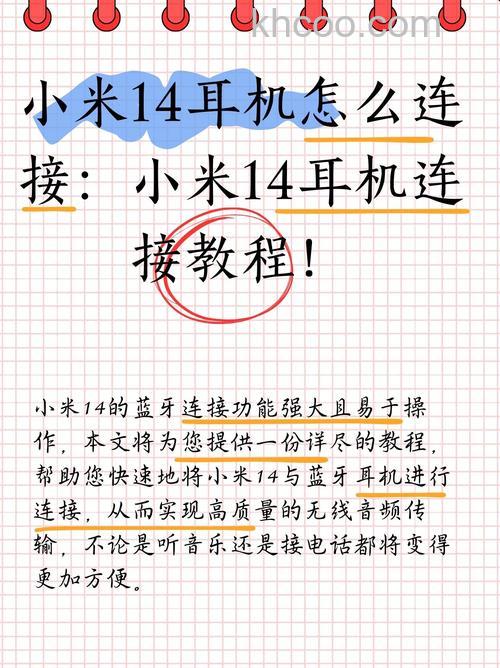 khcoo.com
小米14耳机怎么连
接：小米14耳机连
接教程！
小米14的蓝牙连接功能强大且易于操
作，本文将为您提供一份详尽的教程，
帮助您快速地将小米14与蓝牙耳机进行
连接，从而实现高质量的无线音频传
输，不论是听音乐还是接电话都将变得
更加方便。